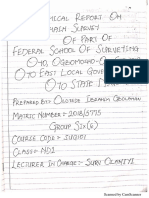 nical Report On
main Survey
Of Part Of
Federal School Of Surveying
Oyo, Ogbomoso-O
Oyo East Local Govern
Oyo State
Prepared By:- Olojede Ibrahim Abolanle
Matric Number:- 2018/5775
Group Six (6)
Course Code:- SUG101
Class:- ND1
Lecturer In Charge:- Surv Olaniyi
Scanned by CamScanner